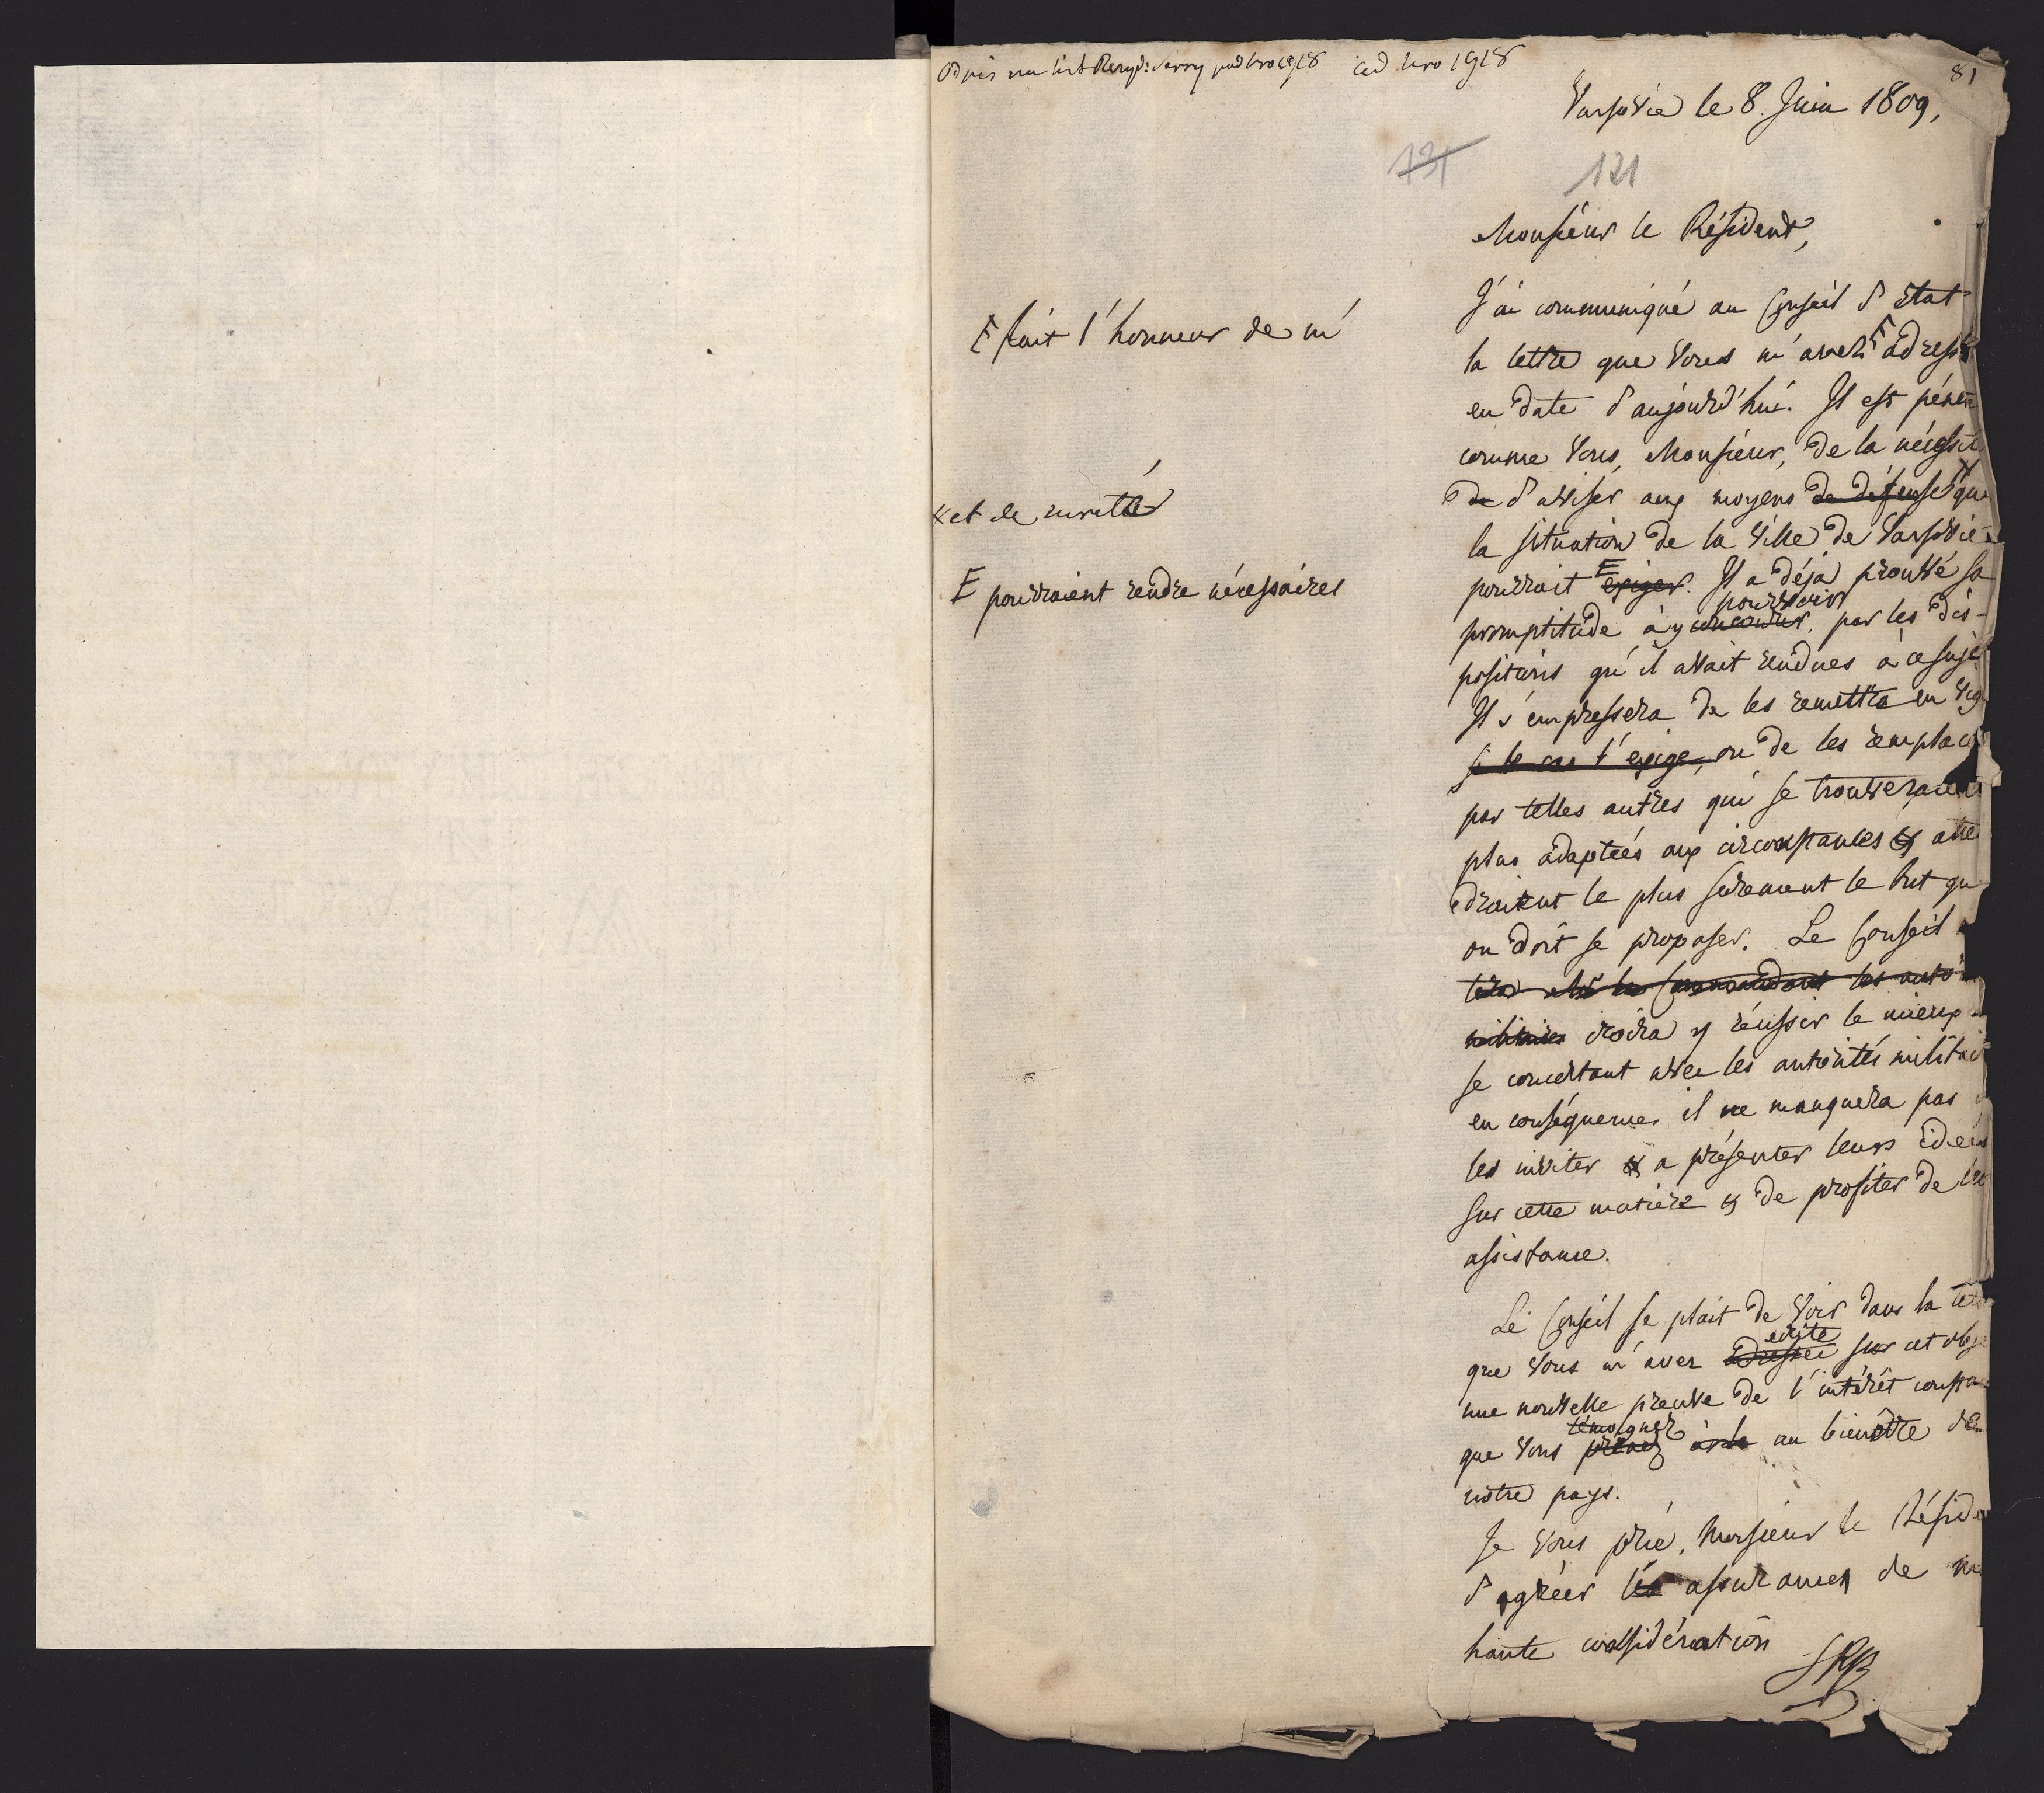 Odpis na list Rezyd: Serry pod Nro 1918 ad Nro 1918
81
Varsovie le 8. Juin 1809,
131
121
Monsieur le Résident,
J'ai communiqué au Conseil d'état
la lettre que Vous m'avez F adress
F fait l'honneur de m'
en date d'aujourd'hui. Il est péné
comme Vous, Monsieur, de la nécessité
de d'aviser aux moyens de défense x que
x et de sureté
la situation de la Ville de Varsovie
pourrait F exiger. Il a déja prouvé sa
F pourraient rendre nécessaires
pourvoir
promptitude à y concourir, par les dis-
positions qu'il avait rendues à ce suje
Il s'empressera de les remettre en vig
si le cas l'exige, ou de les remplace
par telles autres qui se trouveraient
plus adaptées aux circonstances & atte
draient le plus surement le but qu
on doit se proposer. Le Conseil
les auto
militaires croira y réussir le mieux
se concertant avec les autorités militai
en conséquence il ne manquera pas
les inviter & a présenter leurs idées
sur cette matière & de profiter de leu
assistance.
Le Conseil se plait de voir dans la let
écrite
que Vous m'avez adressée sur cet obje
une nouvelle preuve de l'intérêt consta
témoignez
que Vous prenez à la au bienêtre de
notre pays.
Je Vous prie, Monsieur le Réside
d'agréer les assurances de m
haute considération